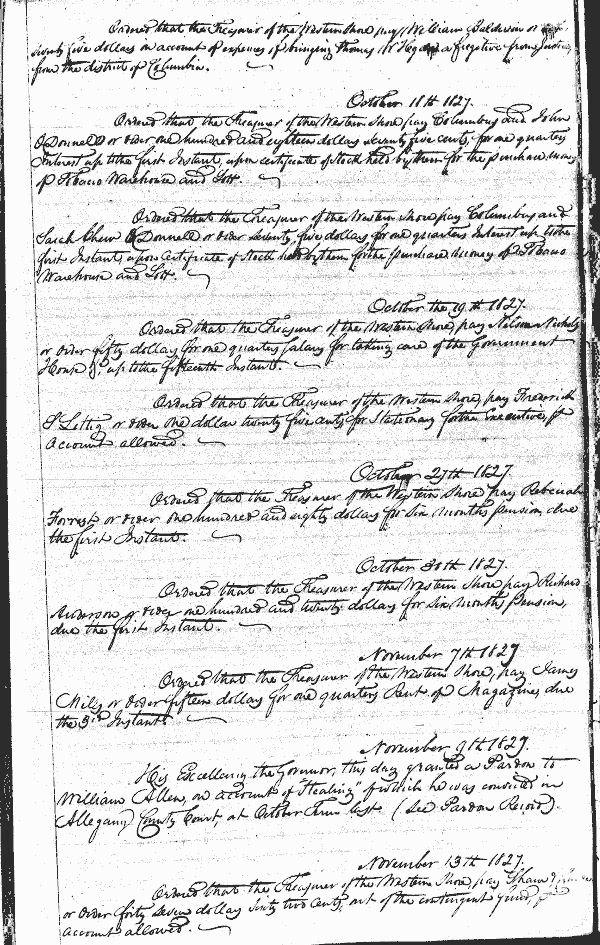 Ordered that the Treasurer of the Western Shore pay William Baldwin or
seventy five dollars on account of expenses of bringing Thomas W a fugitive from Justice
from the district of Columbia.
October 18th 1827.
Ordered that the Treasurer of the Western Shore pay Columbus and John
O'Donnell or order one hundred and eighteen dollars seventy five cents, for one quarters
Interest up to the first Instant, upon certificate of Stock held by them for the purchase money
of Tobacco Warehouse and Lott.
Ordered that the Treasurer of the Western Shore pay Columbus and
Sarah Chew O'Donnell or order seventy five dollars for one quarters Interest up to the
first Instant, upon Certificate of Stock held by them for the purchase money of Tobacco
Warehouse and Lott.
October the 19th 1827.
Ordered that the Treasurer of the Western Shore, pay Nelson Nichols
or order fifty dollars for one quarters Salary for taking care of the Government
House &c, up to the fifteenth Instant.
Ordered that the Treasurer of the Western Shore, pay Frederick
Lettig or order one dollar twenty five cents for Stationary for the Executive, pr
account allowed.
October 27th 1827.
Ordered that the Treasurer of the Western Shore pay Rebecca
Forrest or order one hundred and eighty dollars for Six months pension due
the first Instant.
October 30th 1827.
Ordered that the Treasurer of the Western Shore pay Richard
Anderson or order one hundred and twenty dollars for Six Months pension,
due the first Instant.
November 7th 1827
Ordered that the Treasurer of the Western Shore, pay James
Miles or order fifteen dollars for one quarters Rent of Magazine, due
the 3rd Instant.
November 9th 1827.
His Excellency the Governor, this day granted a Pardon to
William Allen, on account of "Stealing" of which he was convicted in
Allegany County Court, at October Term last. (See Pardon Record).
November 13th 1827.
Ordered that the Treasurer of the Western Shore, pay Shaw
or order forty seven dollars Sixty two cents, out of the contingent fund, pr
account allowed.